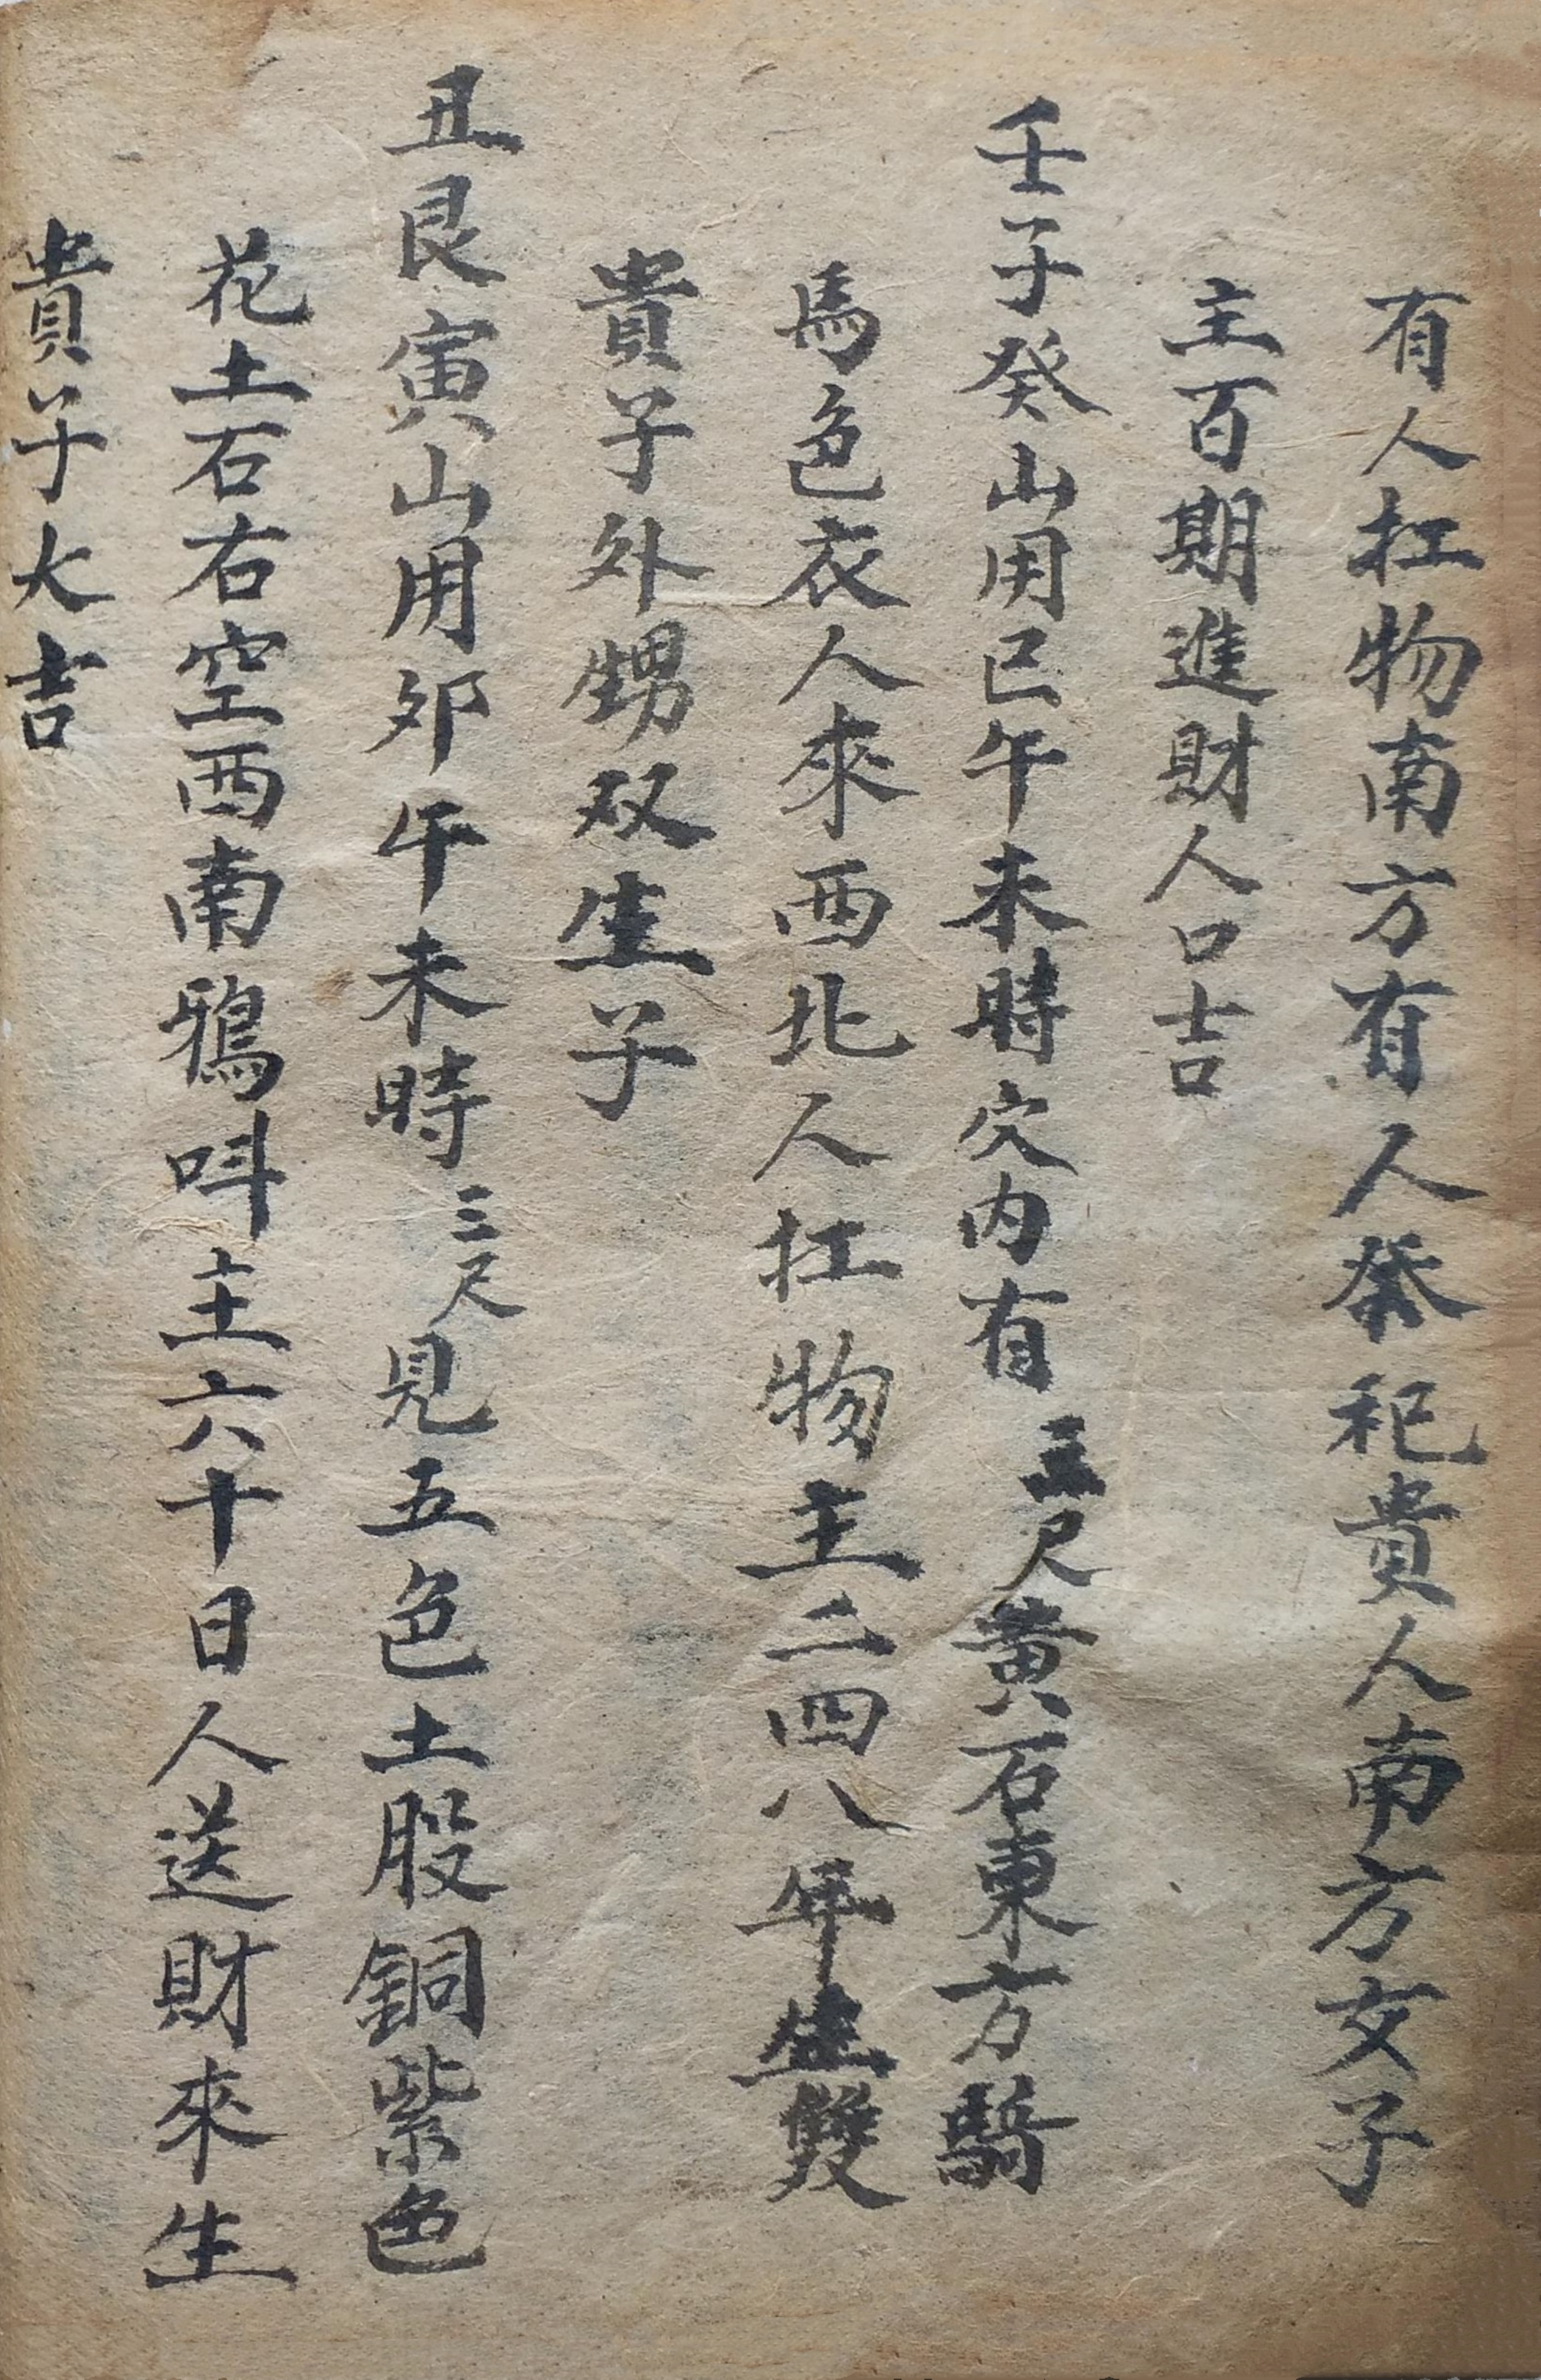 有人扛物南方有人祭祀貴人南方女子
主百期進財人口吉
壬子癸山用巳午未時穴内有三尺黄石東方騎
馬色衣人來西北人扛物主二四八年生雙
貴子外甥双生子
丑艮寅山用夘午未時三尺見五色土股銅紫色
花土石右空西南鴉呌主六十日人送財來生
貴子大吉